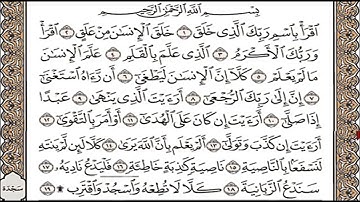 بِسْمِ ٱللَّهِ ٱلرَّحْمَٰنِ ٱلرَّحِيمِ
ٱقْرَأْ بِٱسْمِ رَبِّكَ ٱلَّذِى خَلَقَ ١ خَلَقَ ٱلْإِنسَٰنَ مِنْ عَلَقٍ ٢ ٱقْرَأْ
وَرَبُّكَ ٱلْأَكْرَمُ ٣ ٱلَّذِى عَلَّمَ بِٱلْقَلَمِ ٤ عَلَّمَ ٱلْإِنسَٰنَ
مَا لَمْ يَعْلَمْ ٥ كَلَّآ إِنَّ ٱلْإِنسَٰنَ لَيَطْغَىٰٓ ٦ أَن رَّءَاهُ ٱسْتَغْنَىٰٓ
٧ إِنَّ إِلَىٰ رَبِّكَ ٱلرُّجْعَىٰٓ ٨ أَرَءَيْتَ ٱلَّذِى يَنْهَىٰ ٩ عَبْدًا
إِذَا صَلَّىٰٓ ١٠ أَرَءَيْتَ إِن كَانَ عَلَى ٱلْهُدَىٰٓ ١١ أَوْ أَمَرَ بِٱلتَّقْوَىٰٓ
١٢ أَرَءَيْتَ إِن كَذَّبَ وَتَوَلَّىٰٓ ١٣ أَلَمْ يَعْلَم بِأَنَّ ٱللَّهَ يَرَىٰ ١٤ كَلَّا لَئِن لَّمْ يَنتَهِ
لَنَسْفَعًۢا بِٱلنَّاصِيَةِ ١٥ نَاصِيَةٍ كَٰذِبَةٍ خَاطِئَةٍ ١٦ فَلْيَدْعُ نَادِيَهُۥ ١٧
سَنَدْعُ ٱلزَّبَانِيَةَ ١٨ كَلَّا لَا تُطِعْهُ وَٱسْجُدْ وَٱقْتَرِب ۩ ١٩
سَجْدَة